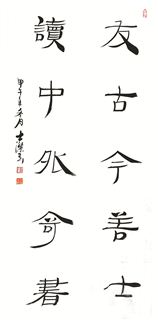 友古今善士
讀中外奇書
甲午年冬月